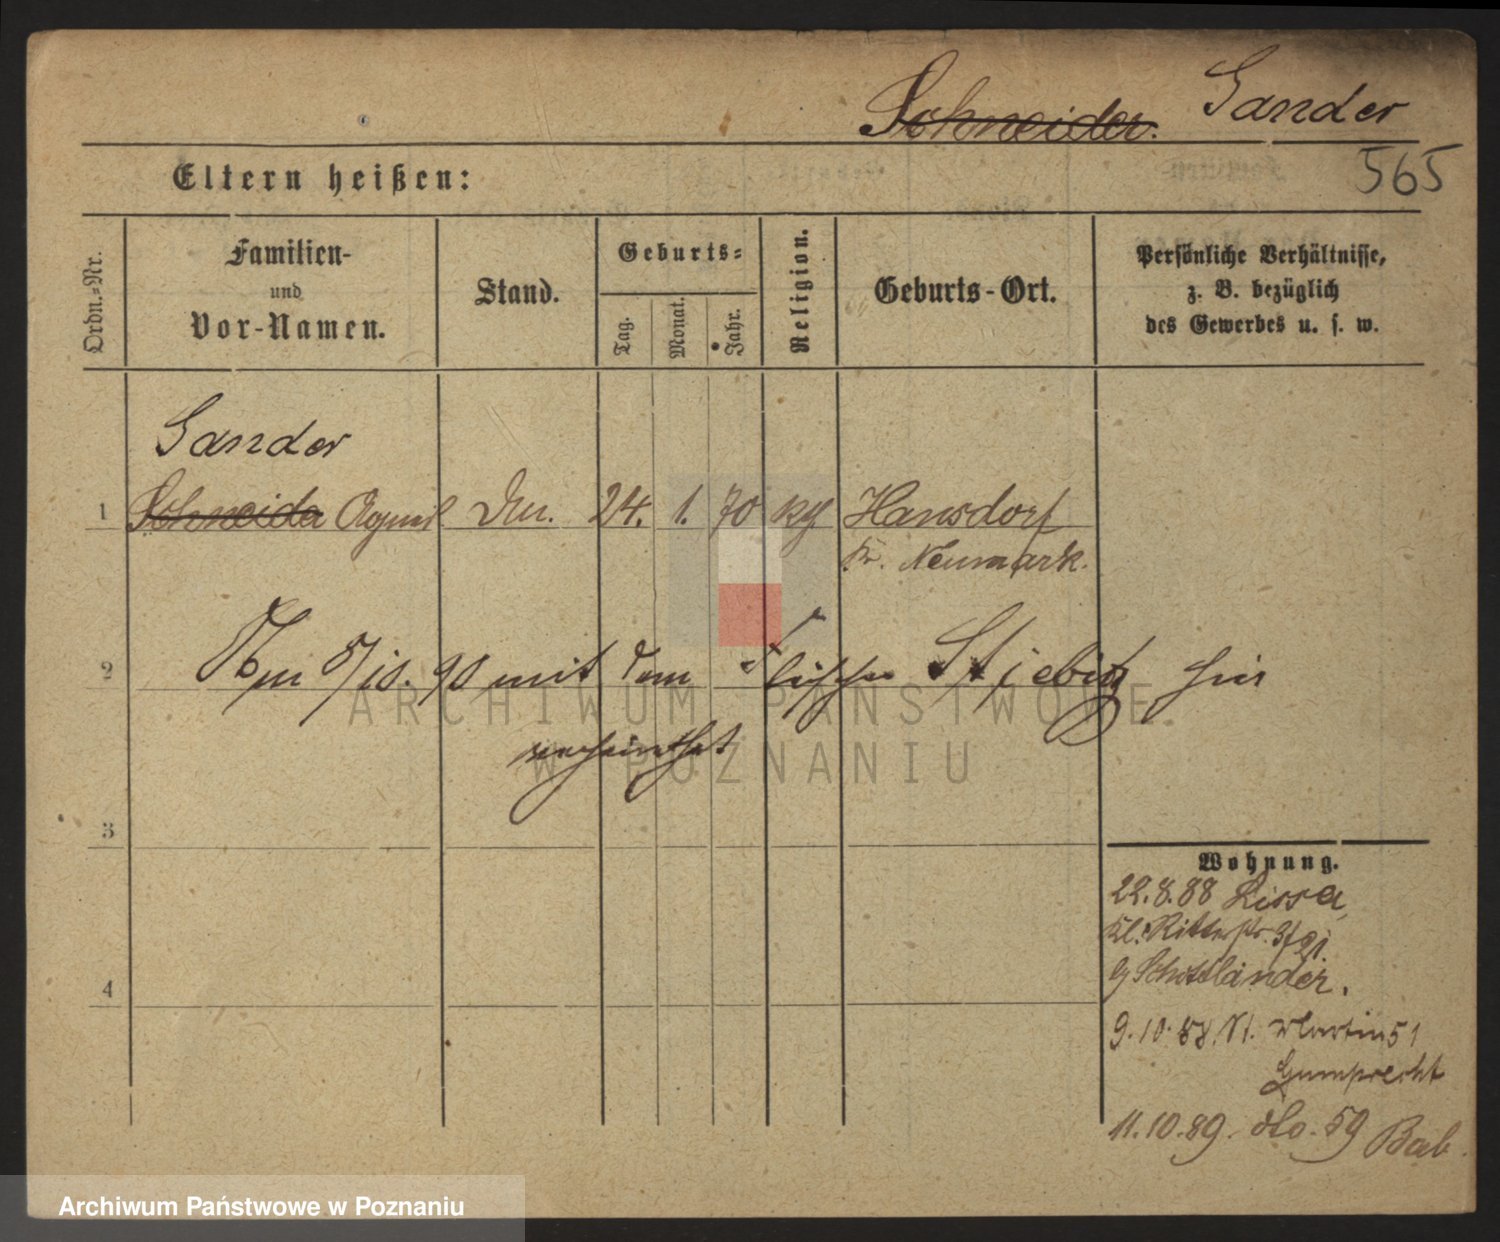 Schneider. Sander
565
Eltern heißen:
Ordn.-Nr.
Familien-
und
Vor-Namen.
Stand.
Geburts-
Tag.
Monat.
Jahr.
Religion.
Geburts-Ort.
Persönliche Verhältnisse,
z. B. bezüglich
des Gewerbes u. s. w.
Sander
1 Schneider 24. 1. 70 Hansdorf
Kr. Neumark.
2 Am 5/10. 90 mit dem Stiebitz hier
verheirathet
3
Wohnung.
22.8.88 Lissa
Kl. Ritterstr.
Schottländer.
4
9.10.88 St. Martin 51
Gumprecht
11.10.89. do. 59 Bab.
ARCHIWUM PAŃSTWOWE
W POZNANIU
Archiwum Państwowe w Poznaniu